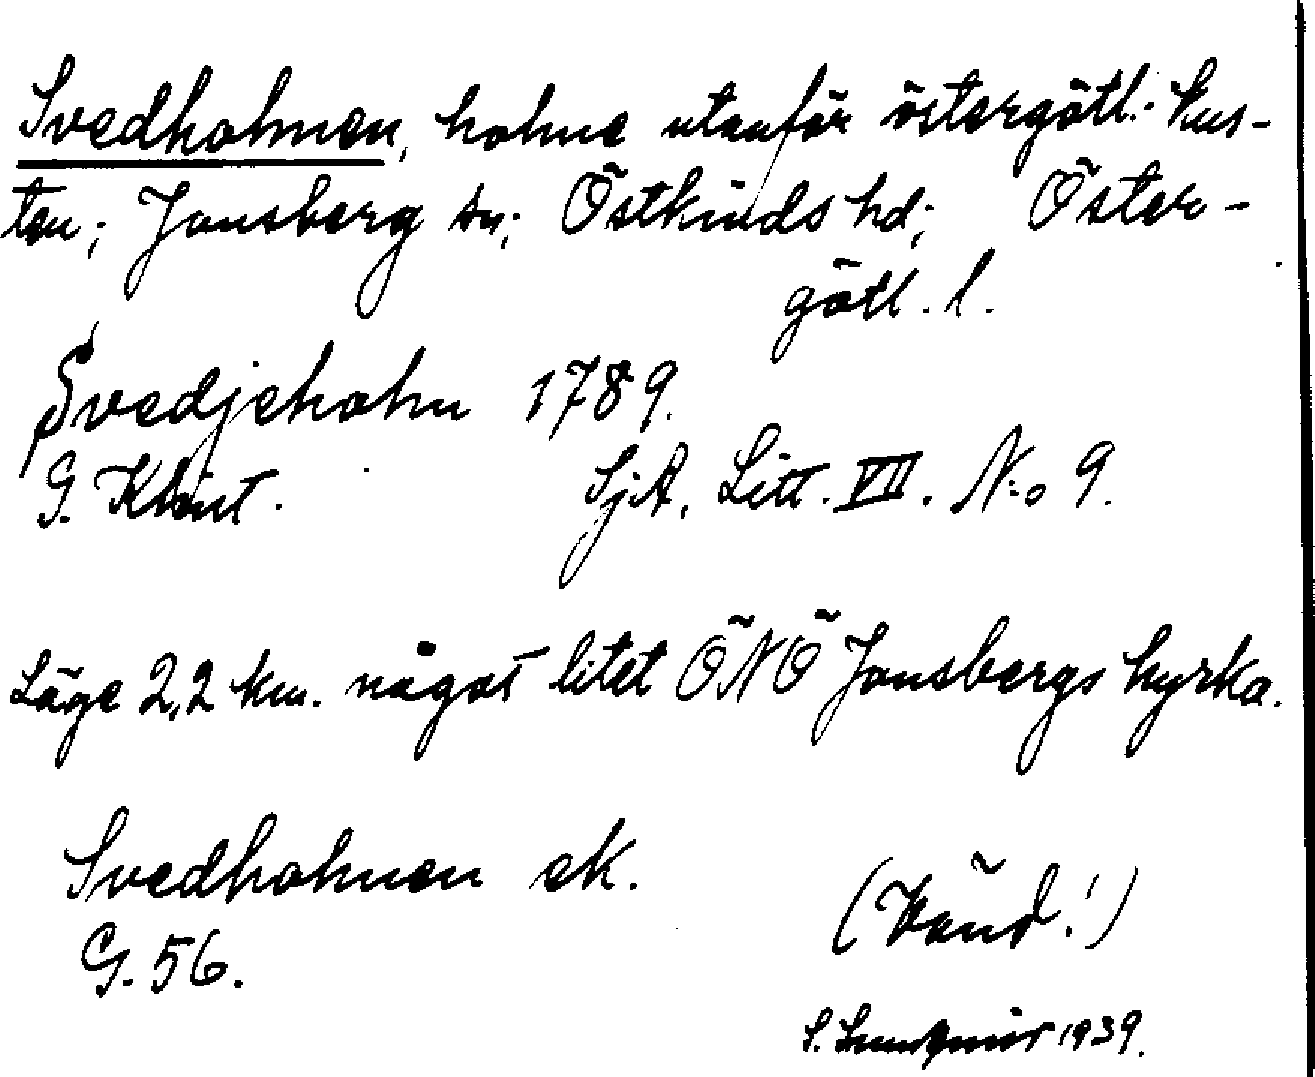 Svedholmen, holme utanför östergötl. kus-
ten; Jonsberg sn; Östkinds hd; Öster-
götl. l.
Svedjeholm 1789.
G. Klint. SjA, Litt. VII. N:o 9.
Läge 2,2 km. något litet ÖNÖ Jonsbergs kyrka.
Svedholmen ek.
G. 56. (Vänd!)
S. Lundqvist 1939.